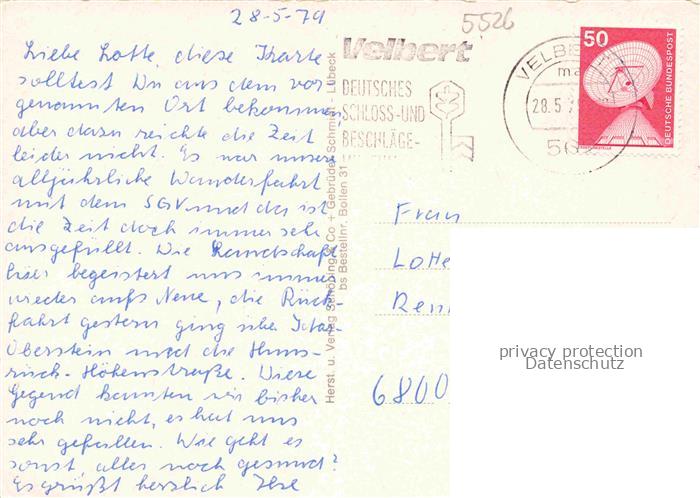 28-5-79
5526
Liebe Lotte, diese Karte
solltest Du aus dem vor-
genannten Ort bekommen,
aber dazu reichte die Zeit
leider nicht. Es war unsere
alljährliche Wanderfahrt
mit dem SGV und da ist
die Zeit doch immer sehr
ausgefüllt. Die Landschaft
hier begeistert uns immer
wieder aufs Neue, die Rück-
fahrt gestern ging über Idar-
Oberstein und die Huns-
rück-Höhenstraße. Diese
Gegend kannten wir bisher
noch nicht, es hat uns
sehr gefallen. Wie geht es
sonst, alles noch gesund?
Es grüßt herzlich Ihre
Herst. u. Verlag Schöning & Co + Gebrüder Schmidt - Lübeck
bs Bestellnr. Bollen 31
Velbert
DEUTSCHES
SCHLOSS-UND
BESCHLÄGE-
VELBE
28.5.7
56
50
DEUTSCHE BUNDESPOST
Frau
Lotte
6800
privacy protection
Datenschutz